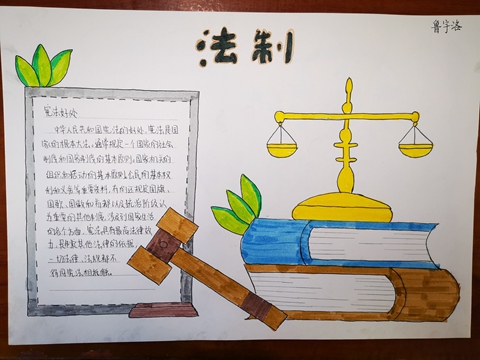 鲁宇洛
法制
宪法好处
中华人民共和国宪法的好处，宪法是国
家的根本大法，通常规定一个国家的社会
制度和国家制度的基本原则，国家机关的
组织和活动的基本原则，公民的基本权
利和义务等重要资料，有的还规定国旗、
国歌、国徽和首都以及统治阶级认
为重要的其他制度，涉及到国家生活
的各个方面。宪法具有最高法律效
力，是制定其他法律的依据，
一切法律、法规都不
得同宪法相抵触。